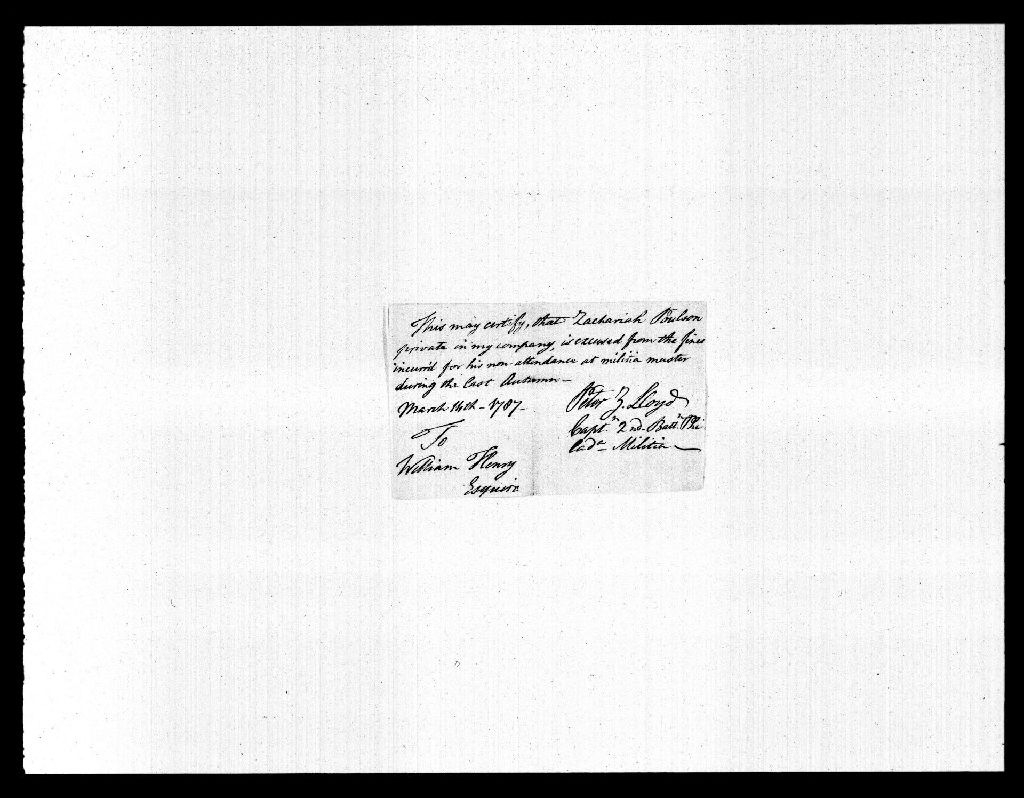 This may certify, that Zachariah Poulson
private in my company, is excused from the fines
incurr'd for his non-attendance at militia muster
during the last Autumn—
March 14th-1787-
Peter Z. Lloyd
Captn. 2nd. Batt.n Phi
lad.a Militia
To
William Henry
Esquire